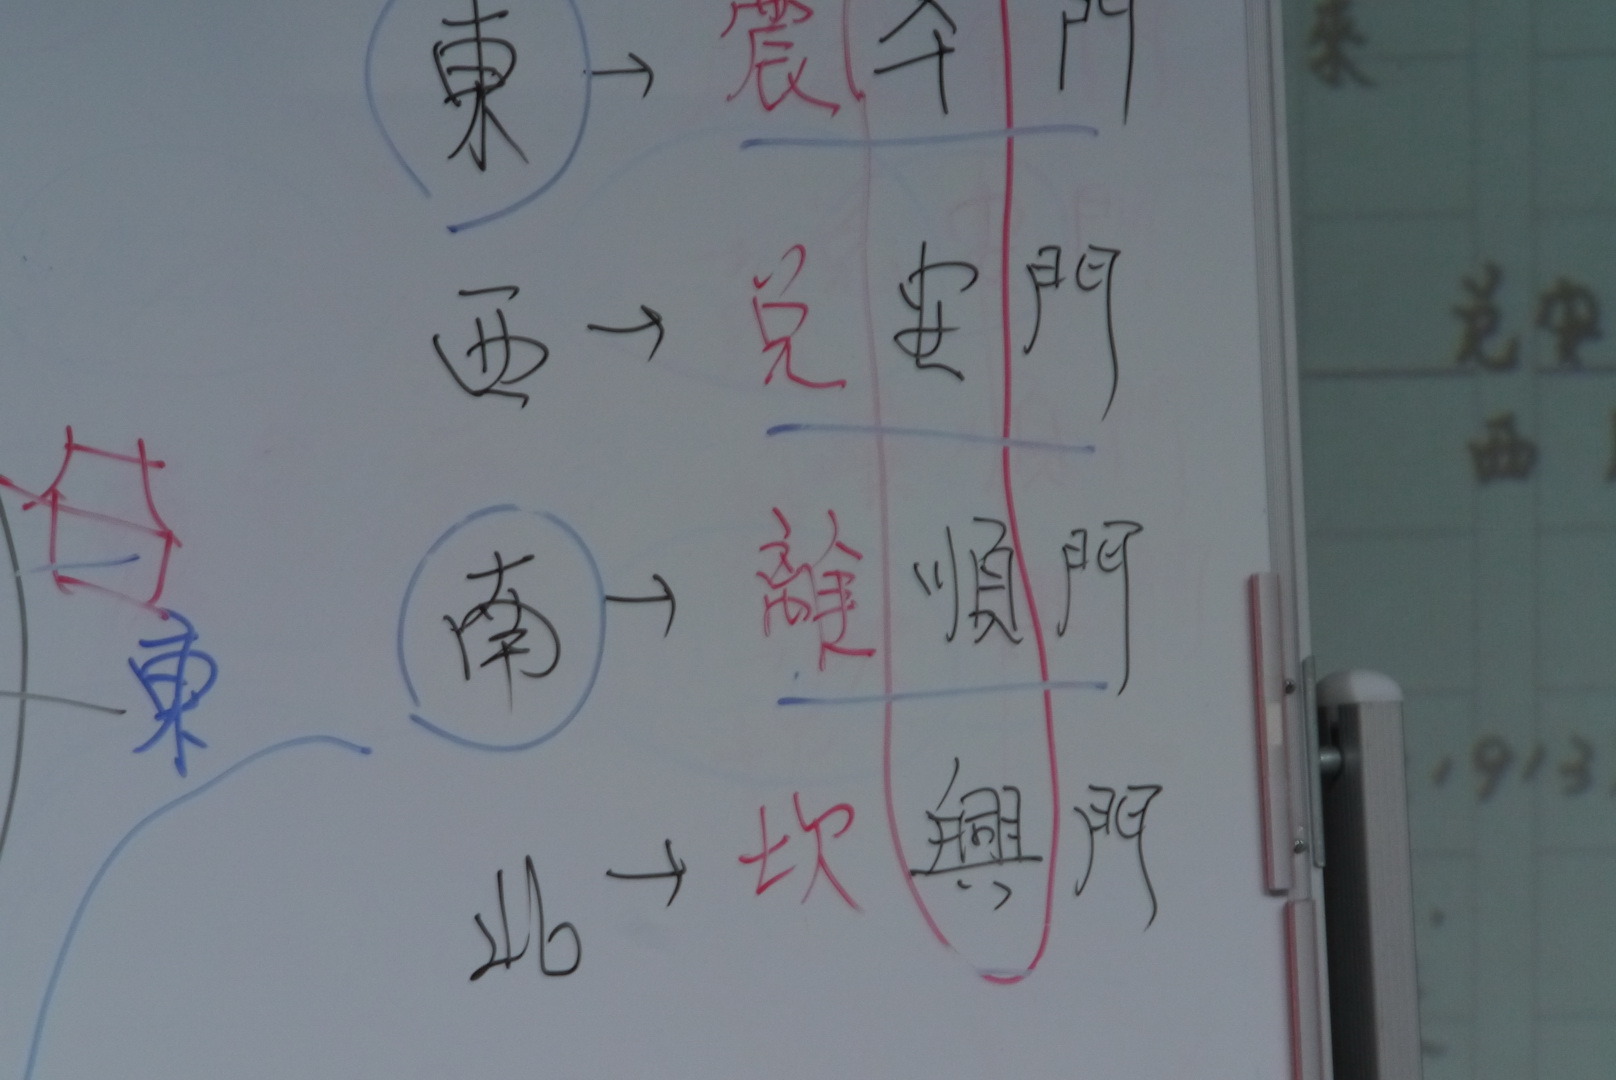 東 → 震 門
西 → 兌安門
南 → 離順門
北 → 坎興門
東
兌安
西
1913